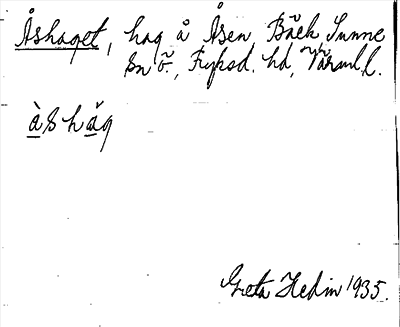 Åshaget, hag å Åsen Bäck Sunne
sn ö., Fryksd. hd, Värml.
àshåg
Greta Hedin 1935.